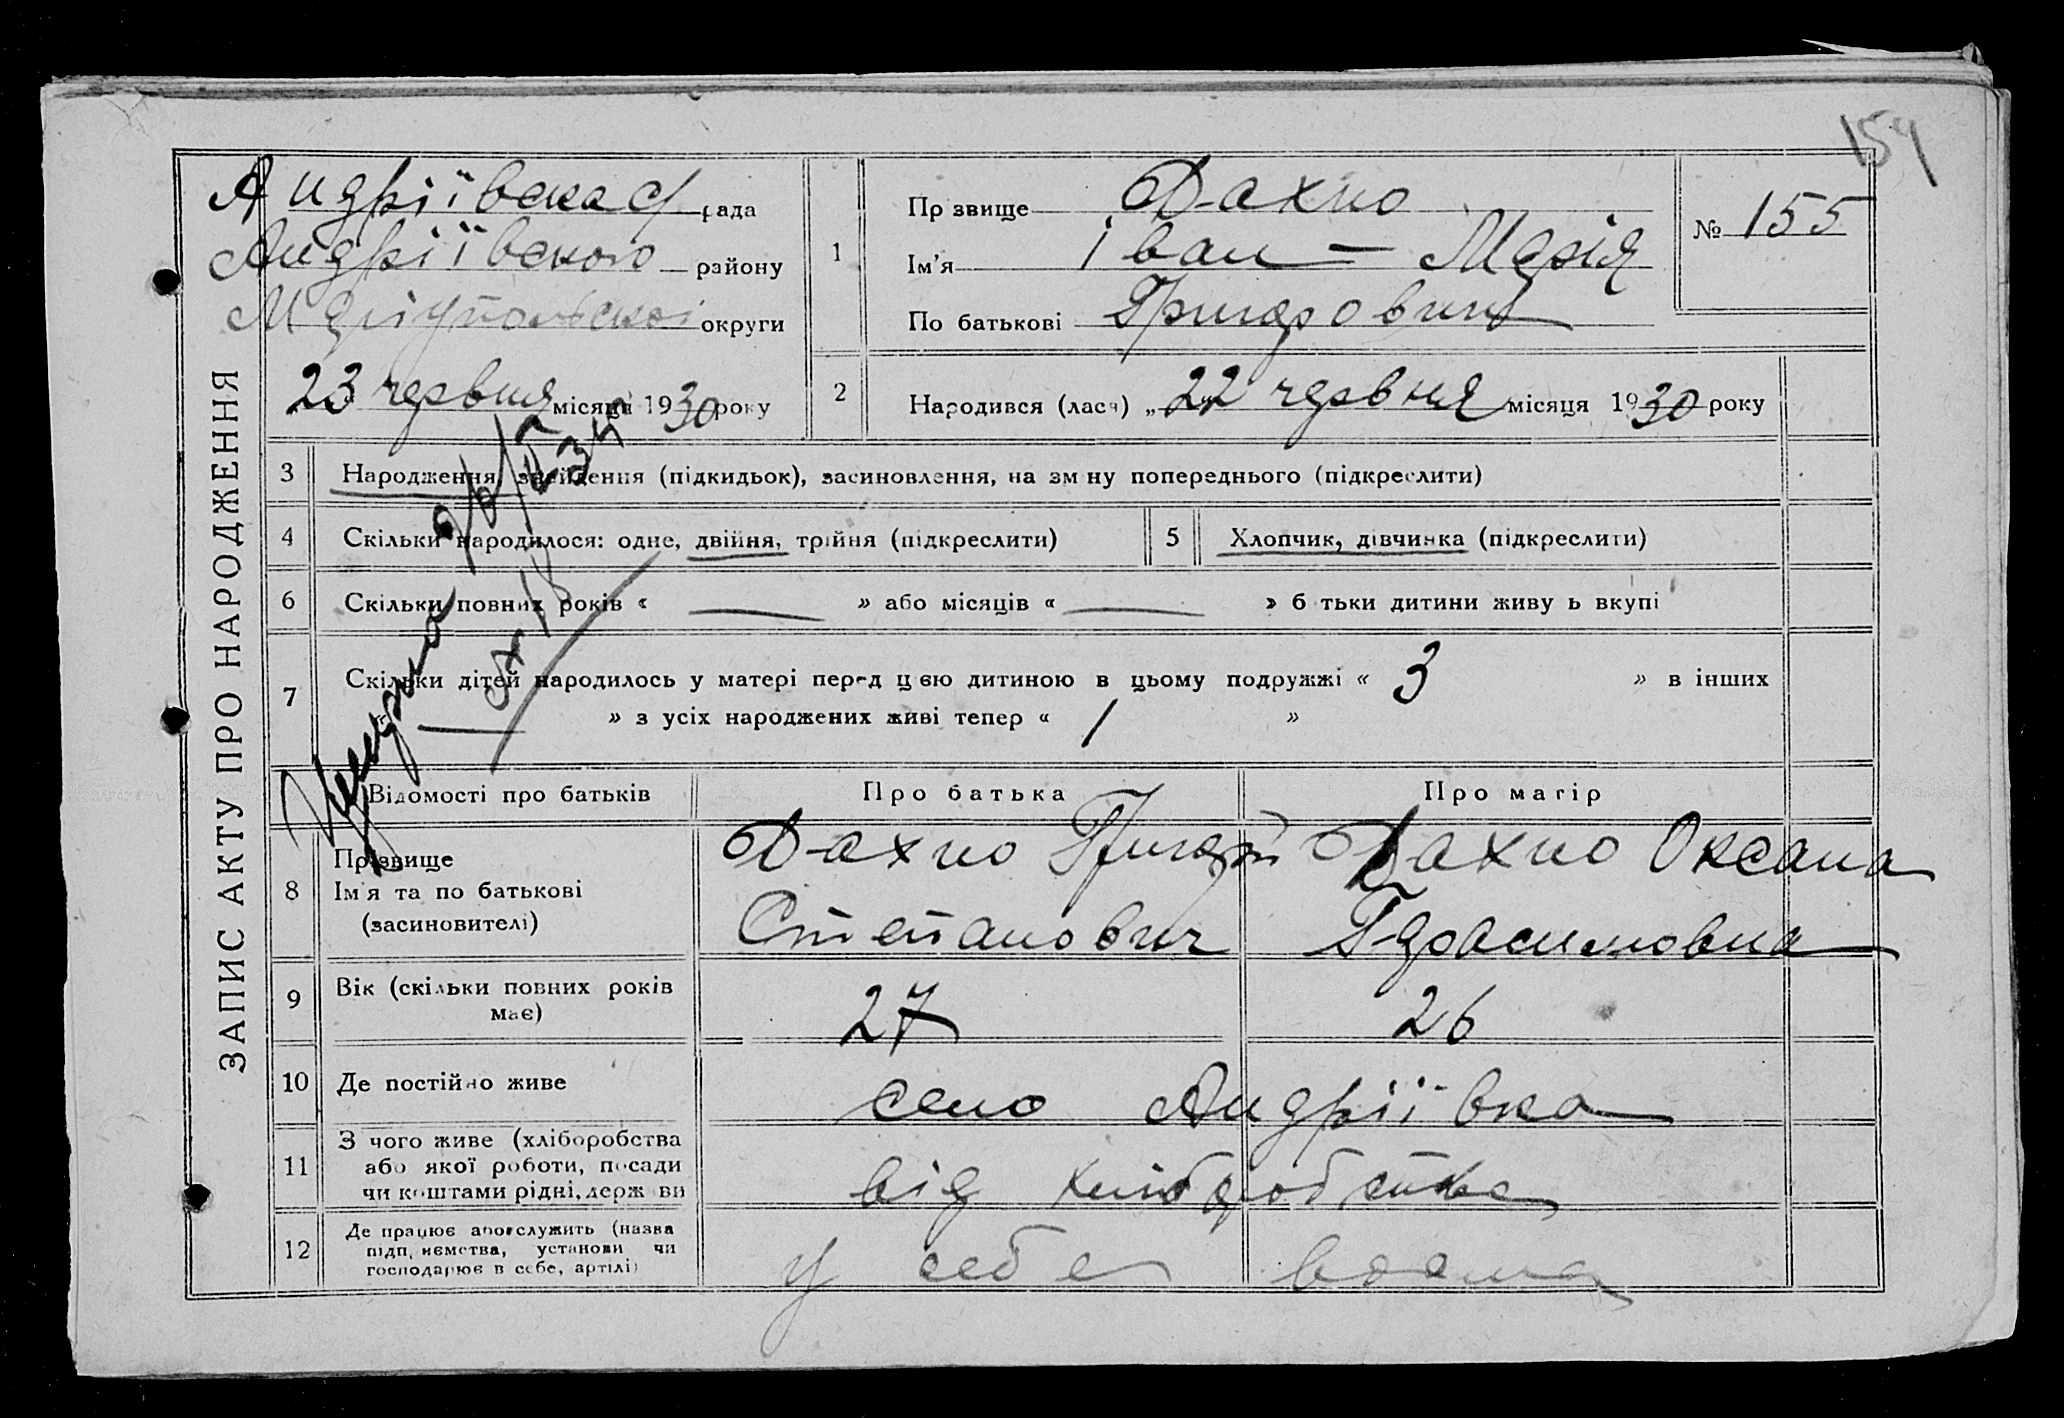 154
ЗАПИС АКТУ ПРО НАРОДЖЕННЯ
Андріївска с/рада
Андріївского району
Маріупольскої округи
23 червня місяця 1930 року
1 Прзвище Дахно
Ім'я Іван – Марія
По батькові Григорович
№ 155
2 Народився (лася) „22 червня місяця 1930 року
3 Народження, знайдення (підкидьок), засиновлення, на зміну попереднього (підкреслити)
4 Скільки народилося: одне, двійня, трійня (підкреслити)
5 Хлопчик, дівчинка (підкреслити)
6 Скільки повних років « — » або місяців « — » батьки дитини живуть вкупі
7 Скільки дітей народилось у матері перед цією дитиною в цьому подружжі « 3 » в інших
« — » з усіх народжених живі тепер « 1 »
Відомості про батьків Про батька Про матір
8 Прізвище
Ім'я та по батькові
(засиновителі)
Дахно Григорій
Степанович
Дахно Оксана
Герасимовна
9 Вік (скільки повних років
має)
27 26
10 Де постійно живе село Андріївка
11 З чого живе (хліборобства
або якої роботи, посади
чи коштами рідні, держави
від хліборобства
12 Де працює або служить (назва
підприємства, установи чи
господарює в себе, артілі)
у себе вдома